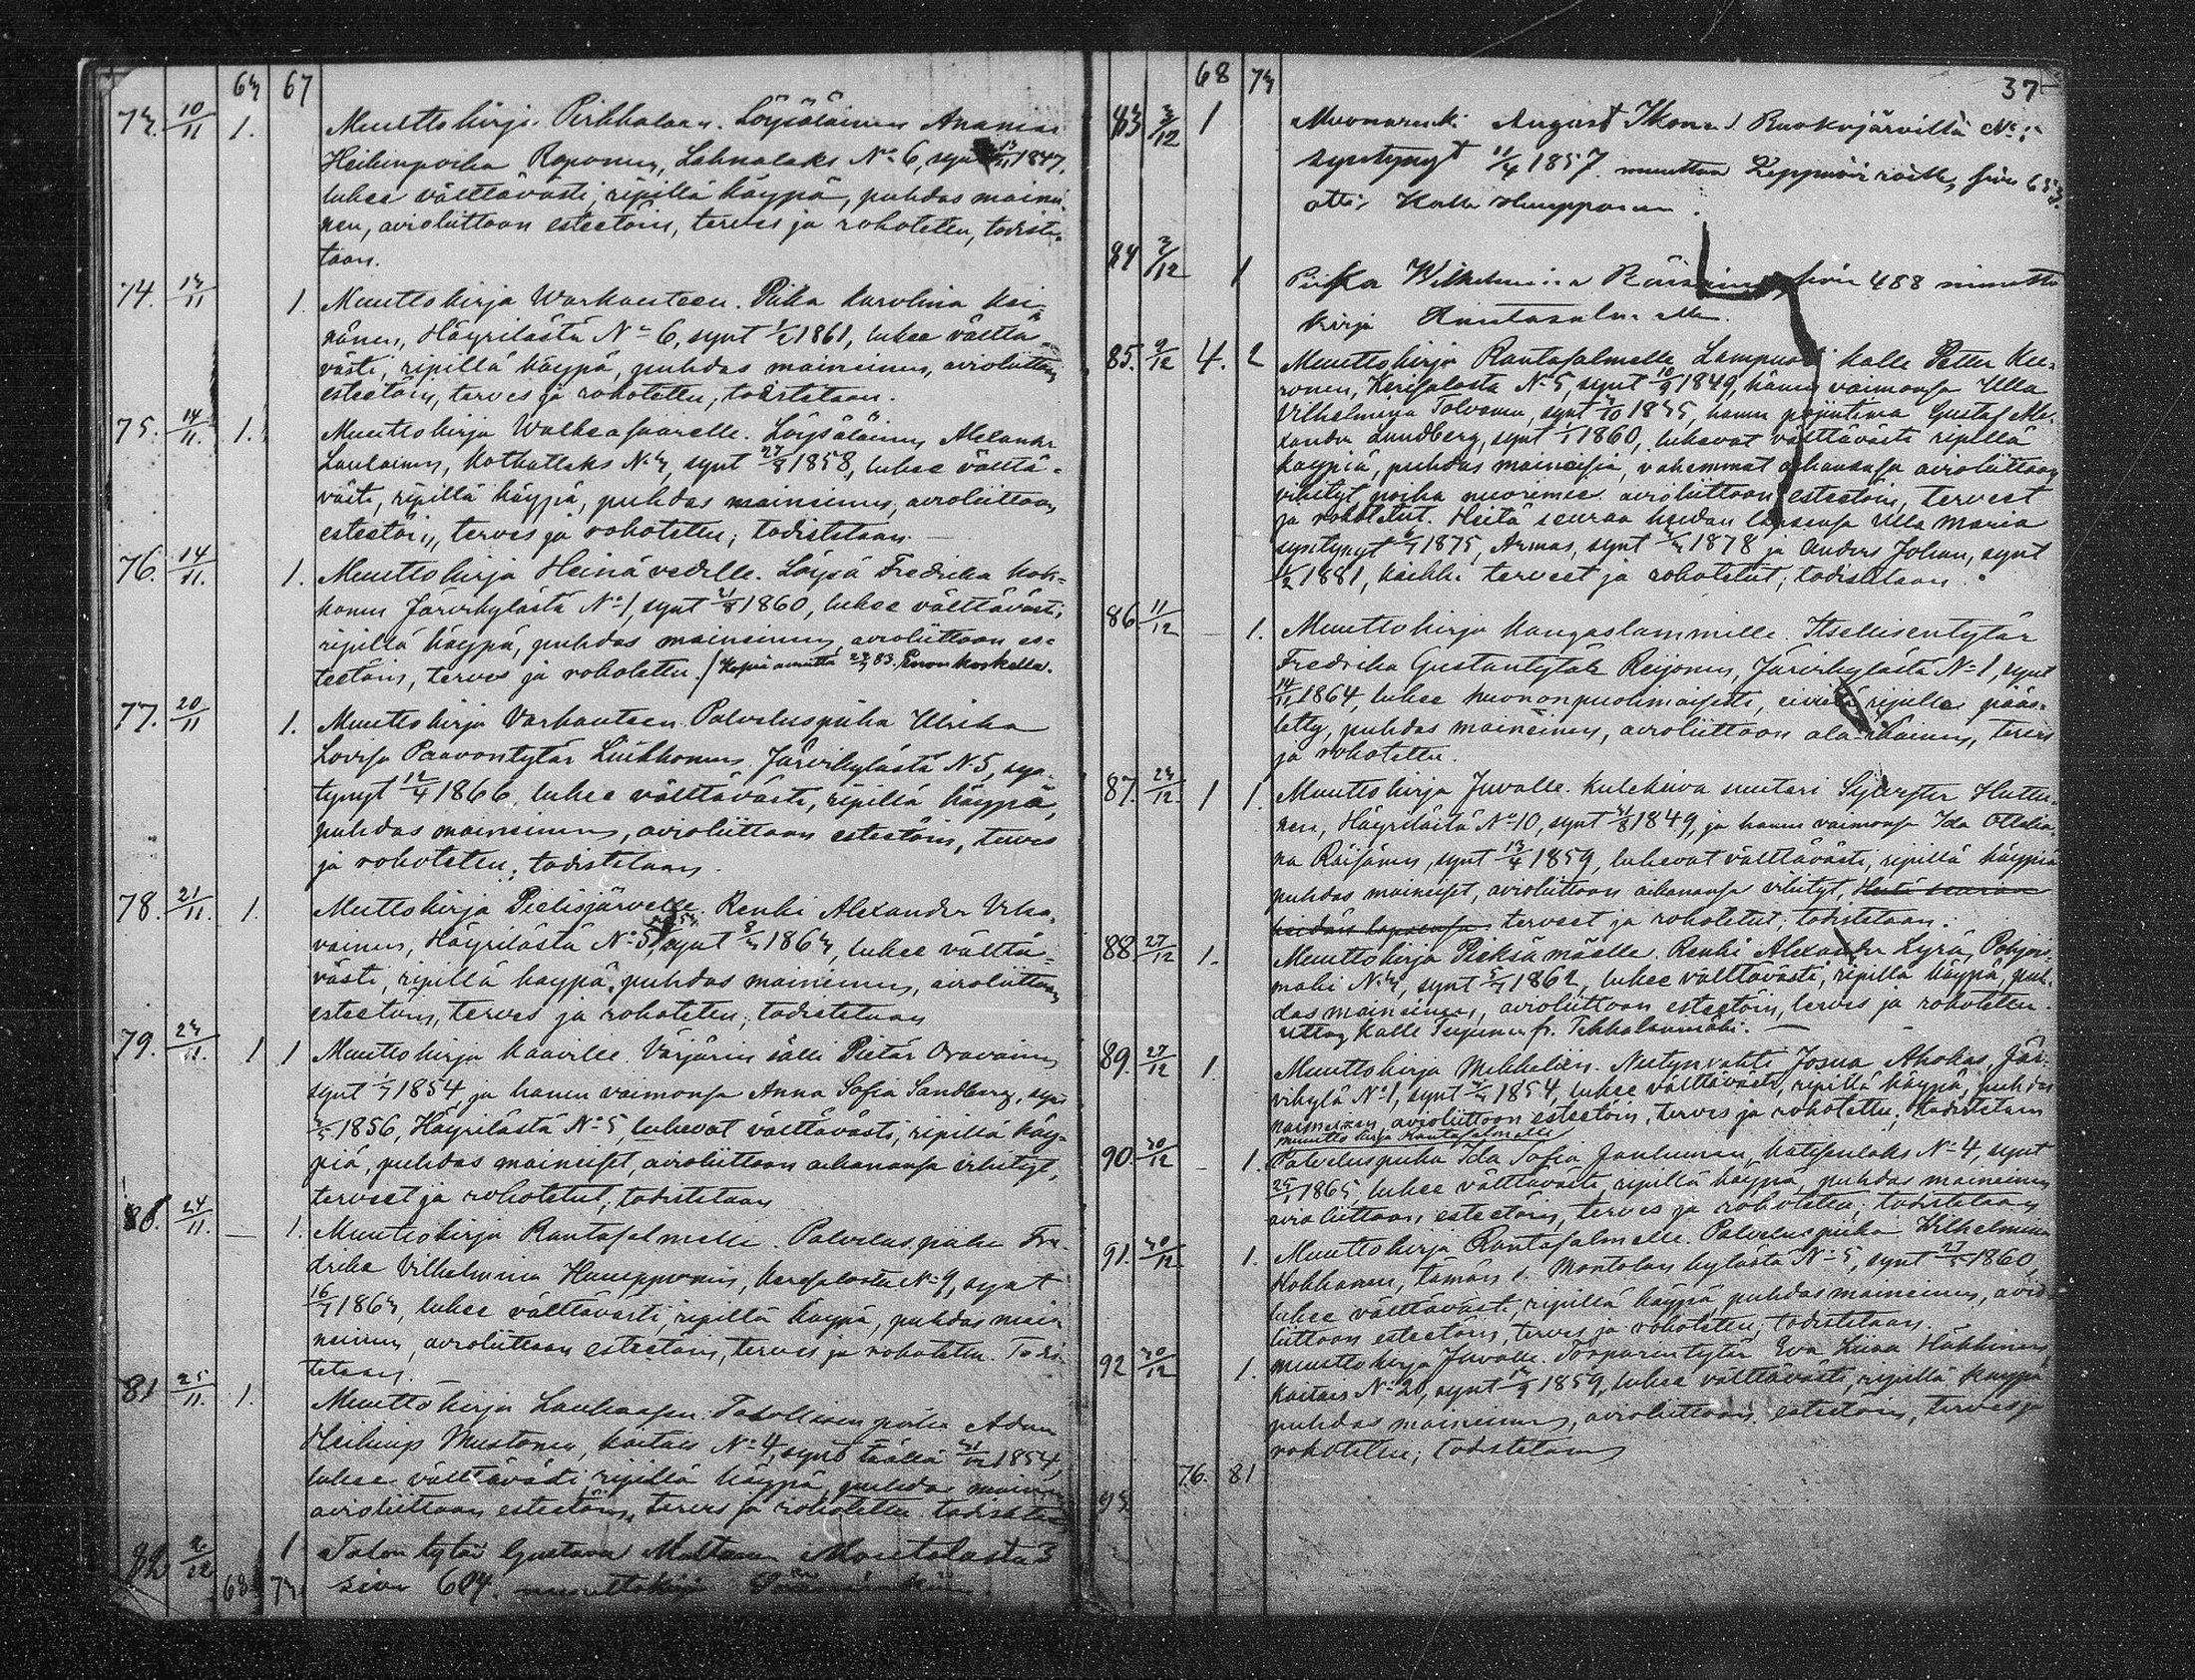 63 67
73. 10/11 1. Muuttokirja Pirkkalaan. Löysäläinen Ananias
Heikinpoika Roponen, Lahnalaks No 6, synt 13/11 1847,
lukee välttävästi, ripillä käypä, puhdas mainei-
nen, avioliittoon esteetöin, terves ja rokotettu, todiste-
taan.
74. 13/11 1. Muuttokirja Warkauteen. Piika Karolina Kei-
nänen, Häyrilästä No 6, synt 1/2 1861, lukee välttä-
västi, ripillä käypä, puhdas maineinen, avioliittoon
esteetöin, terves ja rokotettu, todistetaan.
75. 14/11. 1. Muuttokirja Walkeasaarelle. Löysäläinen Alexander
Laulainen, No 3, synt 27/8 1858, lukee välttä-
västi, ripillä käypä, puhdas maineinen, avioliittoon
esteetöin, terves ja rokotettu; todistetaan.
76. 14/11. 1. Muuttokirja Heinävedelle. Löysä Fredrika Kok-
konen Järvikylästä No 1, synt 21/8 1860, lukee välttävästi,
ripillä käypä, puhdas maineinen, avioliittoon es-
teetöin, terves ja rokotettu. / Kopia annettu 83. Enonkoskelle.
77. 20/11 1. Muuttokirja Varkauteen Palveluspiika Ulrika
Lovisa Paavontytär Liukkonen Järvikylästä No 5, syn-
tynyt 12/4 1866 lukee välttävästi, ripillä käypä,
puhdas maineinen, avioliittoon esteetöin, terves
ja rokotettu; todistetaan.
78. 21/11. 1. Muttokirja Pielisjärvelle. Renki Alexander Ukko-
vainen, Häyrilästä No 5, synt 8/3 1863, lukee välttä-
västi, ripillä käypä, puhdas maineinen, avioliittoon
esteetöin, terves ja rokotettu; todistetaan
79. 23/11. 1 1 Muuttokirja Kaaville. Värjärin sälli Pietar Oravainen
synt 1/7 1854, ja hänen vaimonsa Anna Sofia Sandberg, synt
3/5 1856, Häyrilästä No 5, lukevat välttävästi, ripillä käy-
piä, puhdas maineiset, avioliittoon aikanansa vihityt,
terveet ja rokotetut, todistetaan
80. 24/11. — 1. Muuttokirja Rantasalmelle. Palveluspiika Fre-
drika Vilhelmina Haupponen, Kerisalosta No 9, synt
16/7 1863, lukee välttävästi, ripillä käypä, puhdas mai-
neinen, avioliittoon esteetöin, terves ja rokotettu. Todis-
tetaan.
81 25/11. 1. Muuttokirja Laukaasen. Talollisen poika Adam
Heikinp Mustonen, Kaitais No 4, synt täällä 31/12 1854,
lukee välttävästi ripillä käypä puhdas mainen
avioliittoon esteetöin, terves ja rokotettu todistetaan
82 2/12 1 Talon tytär Gustava Maltanen Montolasta 3
sivu 604 muuttokirja
68 73
68 73 37
83 3/12 1 Muonarenki August Ikonen Ruokojärviltä No
syntynyt 11/4 1857. muuttaa Leppävirroille, sivu 653.
otti Kalle Haupponen.
84 3/12 1 Piika Wilhelmina Räisänen, sivu 488 muutto
kirja Rantasalmelle.
85. 9/12 4. 2 Muuttokirja Rantasalmelle Lampuoti Kalle Petter Kei-
ronen, Kerisalosta No 5, synt 10/9 1849, hänen vaimonsa Ulla
Vilhelmina Tolvanen, synt 3/10 1835, hänen pojintima Gustaf Ale-
xander Lundberg, synt 1/1 1860, lukevat välttävästi ripillä
käypiä, puhdas maineisia, vahemmat aikanansa avioliittoon
vihityt, poika nuorimies avioliittoon esteetöin, terveet
ja rokotetut. Heitä seuraa heidän lapsensa Ulla Maria
syntynyt 6/7 1875, Armas, synt 1878 ja Anders Johan, synt
1/2 1881, kaikki terveet ja rokotetut; todistetaan.
86 11/12 — 1. Muuttokirja Kangaslammille. Itsellisentytär
Fredrika Gustaantytär Reijonen, Järvikylästä No 1, synt
14/11 1864, lukee huononpuolimaisesti, ei vielä ripille pääs-
tetty, puhdas maineinen, avioliittoon ala-ikäinen, terves
ja rokotettu.
87. 23/12. 1 1. Muuttokirja Juvalle. Kulekeiva suutari Sylvester Huttu-
nen, Häyrilästä No 10, synt 31/8 1849, ja hänen vaimonsa Ida Ottelia-
na Räisänen, synt 13/4 1859, lukevat välttävästi, ripillä käypiä
puhdas maineiset, avioliittoon aikanansa vihityt, Heitä seuraa
heidän lapsensa terveet ja rokotetut, todistetaan.
88 27/12 1. Muuttokirja Pieksämäelle. Renki Alexander Lyrä, Pohjois-
mäki No 3, synt 5/7 1862, lukee välttävästi, ripillä käypä, puh-
das maineinen, avioliittoon esteetöin, terves ja rokotettu.
Ottaa Kalle
89. 27/12 1. Muuttokirja Mikkeliin. Neitynvahti Josua Ahokas Jär-
vikylä No 1, synt 1854, lukee välttävästi, ripillä käypä, puhdas
maineinen, avioliittoon esteetöin, terves ja rokotettu; todistetaan
muuttokirja Rantasalmelle
90. 30/12 — 1. Palveluspiika Ida Sofia Jantunen, No 4, synt
25/1 1865, lukee välttävästi ripillä käypä, puhdas maineinen
avioliittoon esteetöin, terves ja rokotettu; todistetaan
91. 30/12 1. Muuttokirja Rantasalmelle. Palveluspiika Wilhelmina
Kokkonen, tämän s. Montolan kylästä No 5, synt 27/5 1860,
lukee välttävästi, ripillä käypä, puhdas maineinen, avio-
liittoon esteetöin, terves ja rokotettu, todistetaan.
92 30/12 1. Muuttokirja Juvalle. Torparintytär Eva Liisa Häkkinen
Kaitais No 20, synt 17/9 1859, lukee välttävästi, ripillä käypä
puhdas maineinen, avioliittoon esteetöin, terves ja
rokotettu; todistetaan
76. 81
93